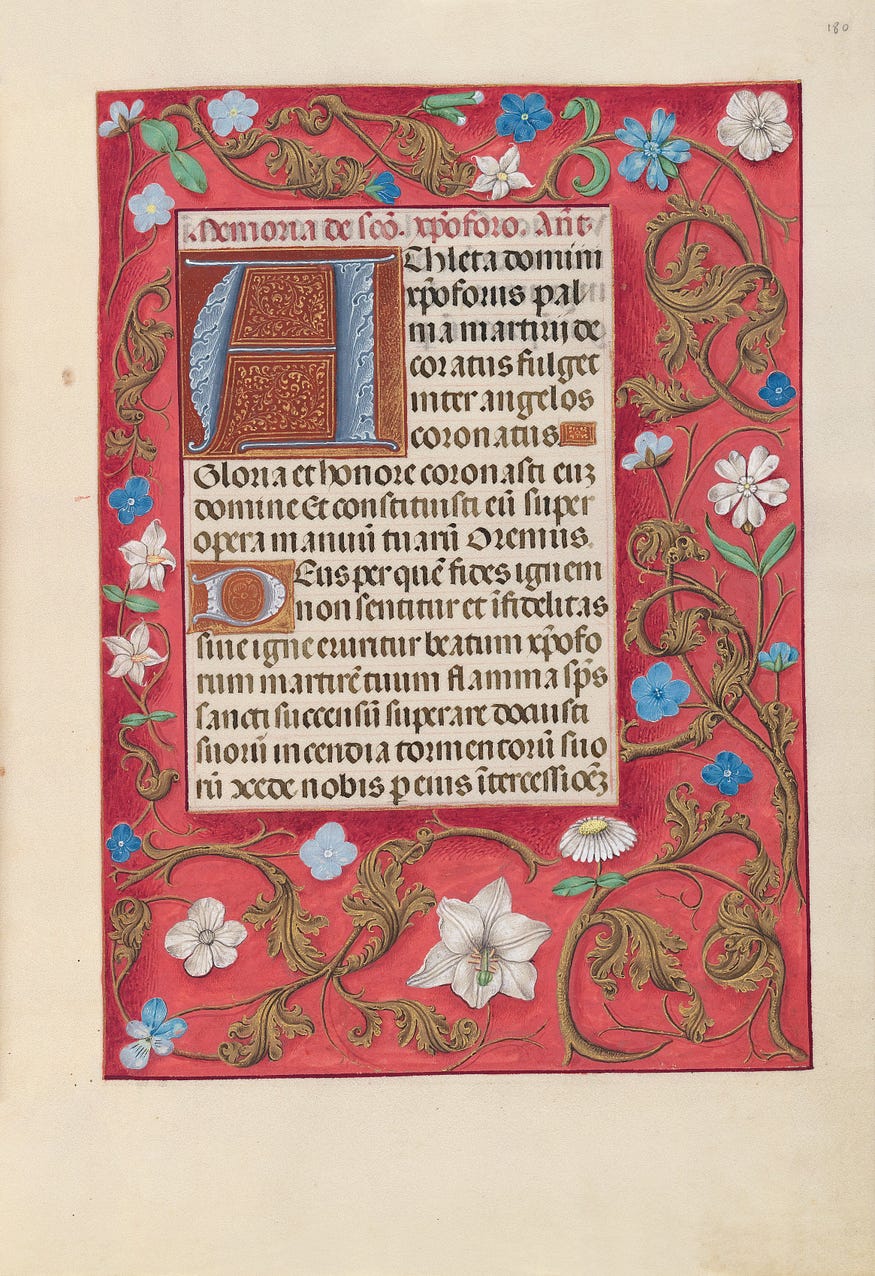 180
Memoria de scō. xp̄oforo. Añt
AThleta domini
xp̄oforus pal
ma martirij de
coratus fulget
inter angelos
coronatus
Gloria et honore coronasti euz
domine Et constituisti eū super
opera manuū tuarū Oremus.
DEus per quē fides ignem
non sentitur et īfidelitas
siue igne eruritur beatum xp̄ofo
rum martirē tuum flamma sp̄s
sancti succensū superare docuisti
suorū incendia tormentorū suo
rū ↄcede nobis p eius ītercessioēz